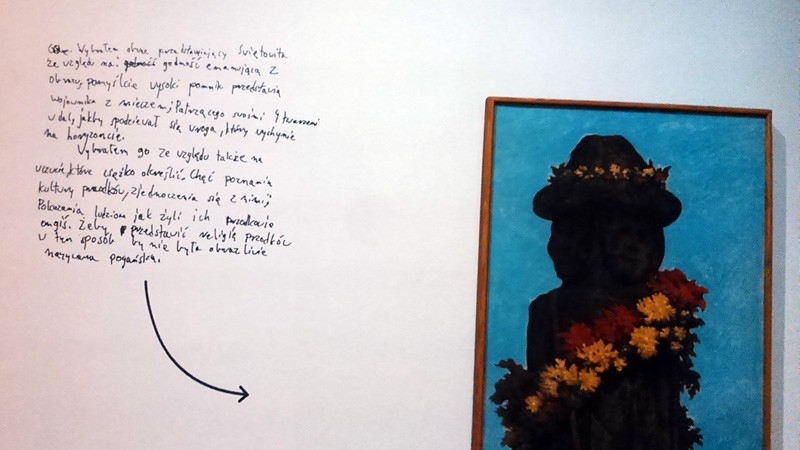 Wybrałem obraz przedstawiający Świętowita
ze względu na: godność emanującą z
obrazu, pomyślcie wysoki pomnik przedstawia
wojownika z mieczem; Patrzącego swoimi 4 twarzami
w dal, jakby spodziewał się wroga, który wychynie
na horyzoncie.
Wybrałem go ze względu także na
uczucie, które ciężko określić. Chęć poznania
kultury przodków, zjednoczenia się z nimi;
Pokazania ludziom jak żyli ich przodkowie
ongiś. Żeby przedstawić religię przodków
w ten sposób by nie była obraźliwie
nazywana pogańską.